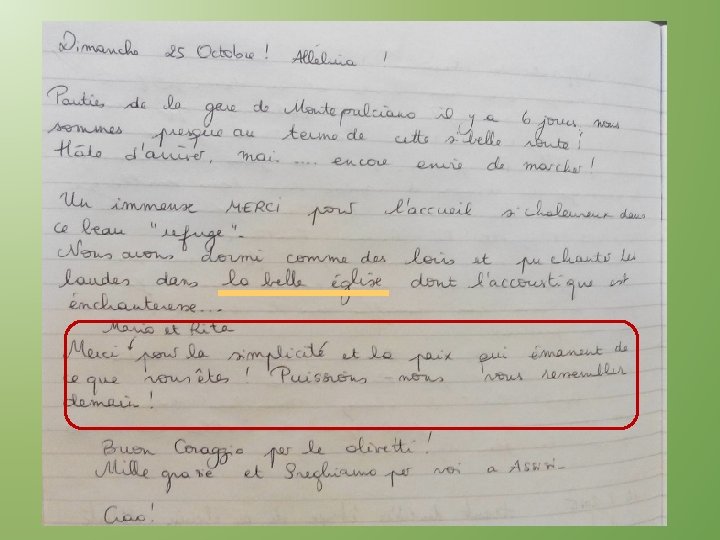 Dimanche 25 Octobre ! Alléluia !
Parties de la gare de Montepulciano il y a 6 jours, nous
sommes presque au terme de cette si belle route !
Hâte d'arriver, mais .... encore envie de marcher !
Un immense MERCI pour l'accueil si chaleureux dans
ce beau "refuge".
Nous avons dormi comme des loirs et pu chanter les
laudes dans la belle église dont l'accoustique est
énchanteresse...
Mario et Rita
Merci pour la simplicité et la paix qui émanent de
ce que vous êtes ! Puissions-nous vous ressembler
demain !
Buon Coraggio per le olivetti !
Mille grazie et Preghiamo per voi a Assisi.
Ciao !